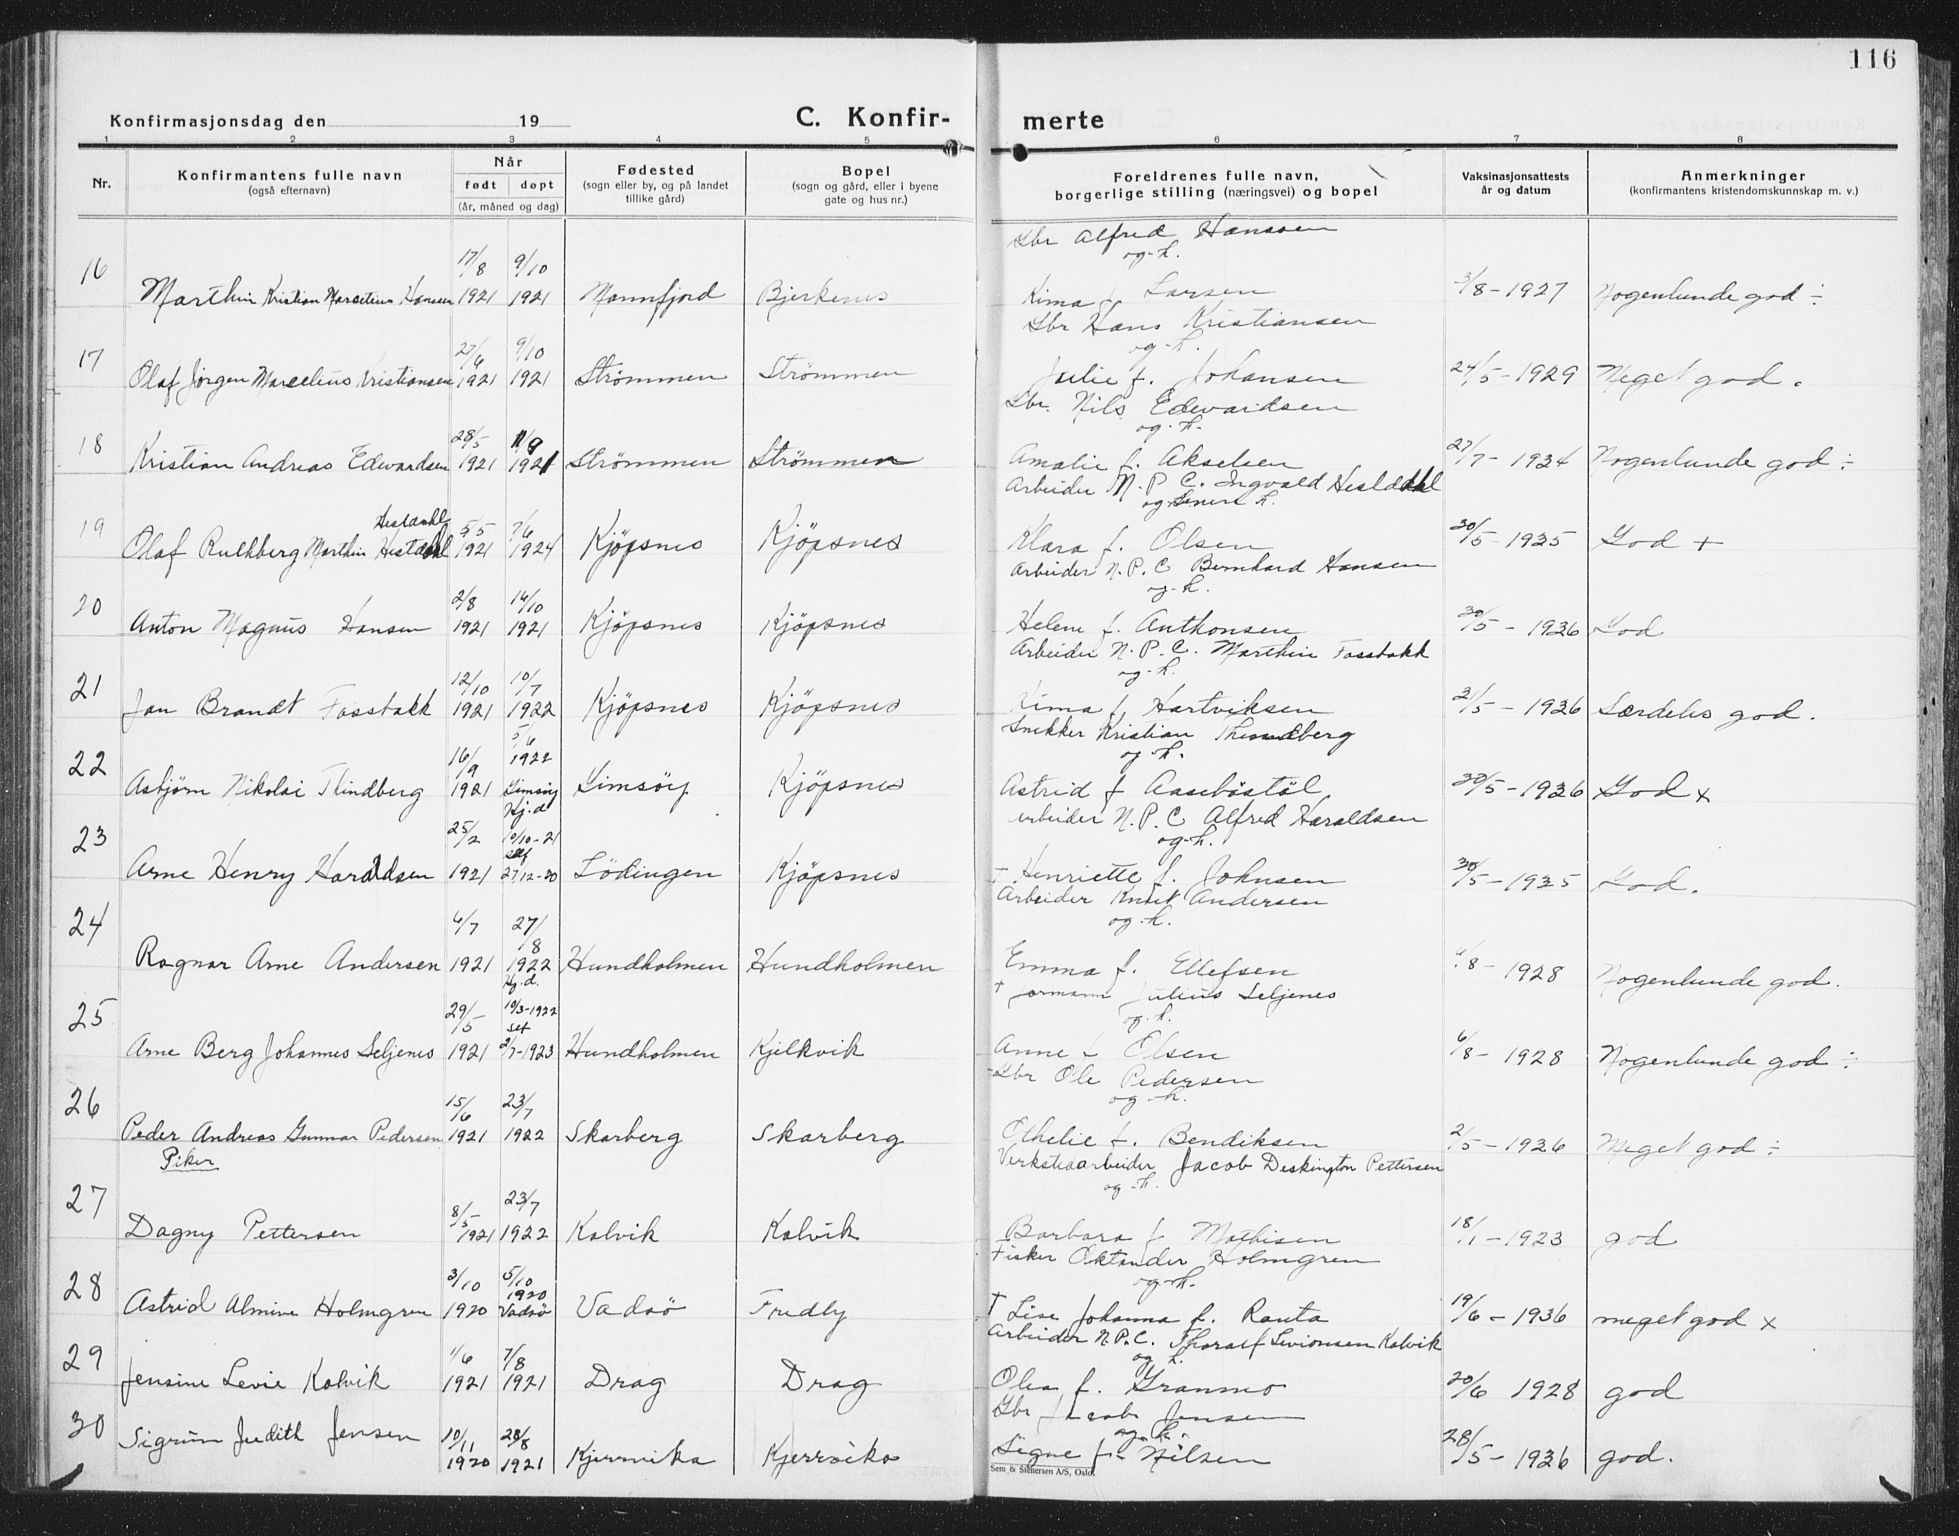 116
Konfirmasjonsdag den 19 C. Konfir- merte
1 2 3 4 5 6 7 8
Nr. Konfirmantens fulle navn (også efternavn)
Når
født døpt
(år, måned og dag)
Fødested
(sogn eller by, og på landet
tillike gård)
Bopel
(sogn og gård, eller i byene
gate og hus nr.)
Foreldrenes fulle navn,
borgerlige stilling (næringsvei) og bopel
Vaksinasjonsattests
år og datum
Anmerkninger
(konfirmantens kristendomskunnskap m. v.)
Gbr Alfred Hanssen
og h.
16 Marthin Kristian Marcelius Hansen 17/8 1921 9/10 1921 Mannfjord Bjerkenes
Kima f. Larsen 3/8-1927 Nogenlunde god ÷
Gbr Hans Kristiansen
og h.
17 Olaf Jørgen Marcelius Kristiansen 27/6 1921 9/10 1921 Strömmen Strömmen
Julie f. Johansen 24/5-1929 Meget god.
Gbr. Nils Edwardsen
og h.
18 Kristian Andreas Edwardsen 28/5 1921 11/9 1921 Strömmen Strömmen
Amalie f. Akselsen 27/7-1934 Nogenlunde god ÷
Arbeider N. P. C. Ingvald Hestdahl
og h.
19 Olaf Marthin Hestdahl 5/5 1921 7/6 1924 Kjöpsnes Kjöpsnes
Klara f. Olsen 30/5-1935 God +
Arbeider N. P. C Bernhard Hansen
og h.
20 Anton Magnus Hansen 2/8 1921 14/10 1921 Kjöpsnes Kjöpsnes
Helene f. Anthonsen 30/5-1936 God
Arbeider N. P. C. Marthin Fosstakk
og h.
21 Jan Brandt Fosstakk 12/10 1921 10/7 1922 Kjöpsnes Kjöpsnes
Kima f. Hartviksen 2/5-1936 Særdeles god.
Snekker Kristian Thindberg
og h.
22 Asbjørn Nikolai Thindberg 16/9 1921 5/6 1922 Kj. d Kjöpsnes
Astrid f 30/5-1936 God x
arbeider N. P. C Alfred Haraldsen
og h.
23 Arne Henry Haraldsen 25/2 1921 10/10-21 Lödingen Kjöpsnes
† Henriette f. Johnsen 30/5-1935 God.
Arbeider Knut Andersen
og h.
24 Ragnar Arne Andersen 6/7 1921 27/8 1922 Hundholmen Hundholmen
Emma f. Ellefsen 6/8-1928 Nogenlunde god.
† formann Julius Seljenes
og h.
25 Arne Berg Johannes Seljenes 29/5 1921 Hj. d. 10/3-1922 2/7-1923 Hundholmen Kjelkvik
Anne f Olsen 6/8-1928 Nogenlunde god ÷
Gbr Ole Pedersen
og h.
26 Peder Andreas Gunnar Pedersen 15/6 1921 23/7 1922 Skarberg Skarberg
Othelie f. Bendiksen 2/5-1936 Meget god ÷
Piker
Verkstedarbeider Jacob Pettersen
og h.
27 Dagny Pettersen 8/5 1921 23/7 1922 Kalvik Kalvik
Barbara f Mathisen 18/1-1923 god
Fisker Oktander Holmgren
og h.
28 Astrid Almine Holmgren 3/10 1920 5/10 1920 Vadsö Vadsö Fredly
† Lise Johanna f. Ranta 19/6-1936 meget god x
Arbeider N. P. C. Tharalf Sevionsen Kalvik
og h.
29 Jensine Levie Kalvik 1/6 1921 7/8 1921 Drag Drag
Olea f. Granmo 20/6 1928 god
Gbr Jacob Jensen
og h.
30 Sigrun Judith Jensen 10/11 1920 28/8 1921 Kjerrvika Kjerrvika
Signe f. Nilsen 28/5-1936 god.
Sem & Stenersen A/S, Oslo.